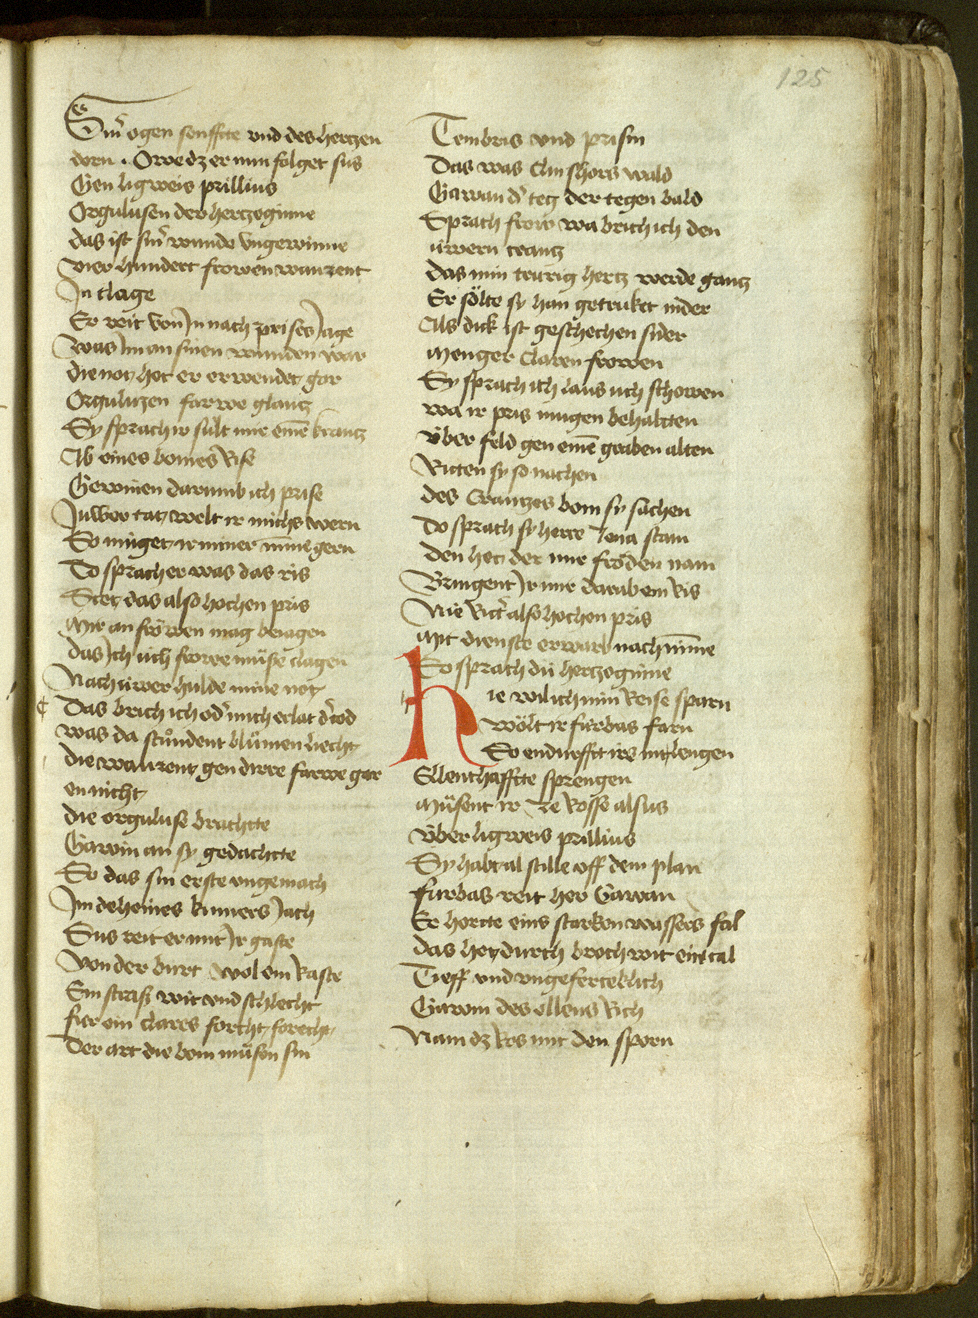 125
Sinr ogen senffte vnd des hertzen
dorn . Owe dz er nun folget sus
Gen ligweis prillius
Orgulusen der hertzoginne
das ist sinr wunde vngewinne
vier hundert frowen warzent
In clage
Er reit von In nach prises Jage
Was Im an sinen wunden war
die not het er erwendet gar
Orgulizen farwe glantz
Sy sprach ir sült mir einē krantz
Ab eines bomes Rise
Gewinen darumb ich prise
Juwer tat welt ir michs wern
So müget ir miner mīne gern
Do sprach er was das ris
Stet das also hochen pris
Mir an frowen mag beiagen
das Ich üch frowe müse clagen
Nach üwer hulde mine not
Das brich ich od' mich erlat d' tod
was da stůndent blůmen liecht
die warent gen dirre farwe gar
en nicht
die orguluse brachtte
Gawin an sy gedachtte
So das sin erste vngemach
Im deheines kumers Jach
Sus reit er mit Ir gaste
Von der burt wol ein Raste
Ein straß wit vnd schlecht
für ein clares forcht forecht
Der art die bom můsen sin
Tembris vnd prisin
Das was Clinshors wald
Gawan d' teg der tegen bald
Sprach frow wa brich ich den
üwern crantz
das min trurig hertz werde gantz
Er sölte sy han getruket nider
Als dick ist geschechen sider
Menger claren frowen
Sy sprach ich laus uch schowen
wa ir pris mugen behaltten
Über feld gen einē graben alten
Ritten sy so nachen
des Crantzes bom sy sachen
Do sprach sy herre Jena stam
den het der mir fröden nam
Bringent Ir mir darab ein Ris
Nie Rittr also hochen pris
Mit dienste erwarb nach mīne
So sprach dü hertzoginne
Hie wil ich min Reise sparn
Wölt ir fürbas farn
So endürfft irs nit lengen
Ellenthaffte sprengen
Müsent ir ze Rosse alsus
Über ligweis prillius
Sy habt al stille uff dem plan
fürbas reit her Gawan
Er horte eins starken wassers fal
das het durch broch wit ein tal
Tieff vnd vngeferteklich
Gawin des ellens Rich
Nam dz Ros mit den sporn